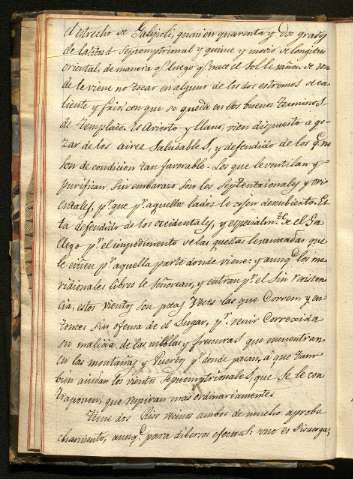 derecho de
quarenta y dos grados
de latitud Septemptrional y quince y medio de longitud
oriental, de manera q.e luego q.e nace el Sol le baña. de don
de le viene no tocar en alguno de los dos estremos de ca
liente y frio, con que se queda en los buenos terminos
de templado. Es Avierto y llano, vien dispuesto a go
zar de los aires Saludables, y defendido de los q.e no
son de condicion tan favorable. Los que le ventilan y
purifican sin embarazo son los Septentrionales, y ori
entales, p.r que p.r aquellos lados le cojen descubierto. Es
ta defendido de los occidentales, y especialm.te de el Ga
llego p.r el impedimento de las cuestas lebantadas que
le ciñen p.r aquella parte donde viene: y aunq.e los me
ridionales libres le Señorean, y entran p.r el Sin resisten
cia, estos vientos son pocas veces las que Corren, y en
tonces sin ofensa de el Lugar, p.r venir Corregida
su malicia de las nieblas y frescuras que encuentran
en las montañas y Puertos p.r donde pasan, a que tam
bien aiudan los vientos Septemptrionales, que Se le con
traponen que respiran mas ordinariamente.
Tiene dos Rios vecinos ambos de mucho aproba
chamiento, aunq.e para diversos efectos: uno es Pisuerga,